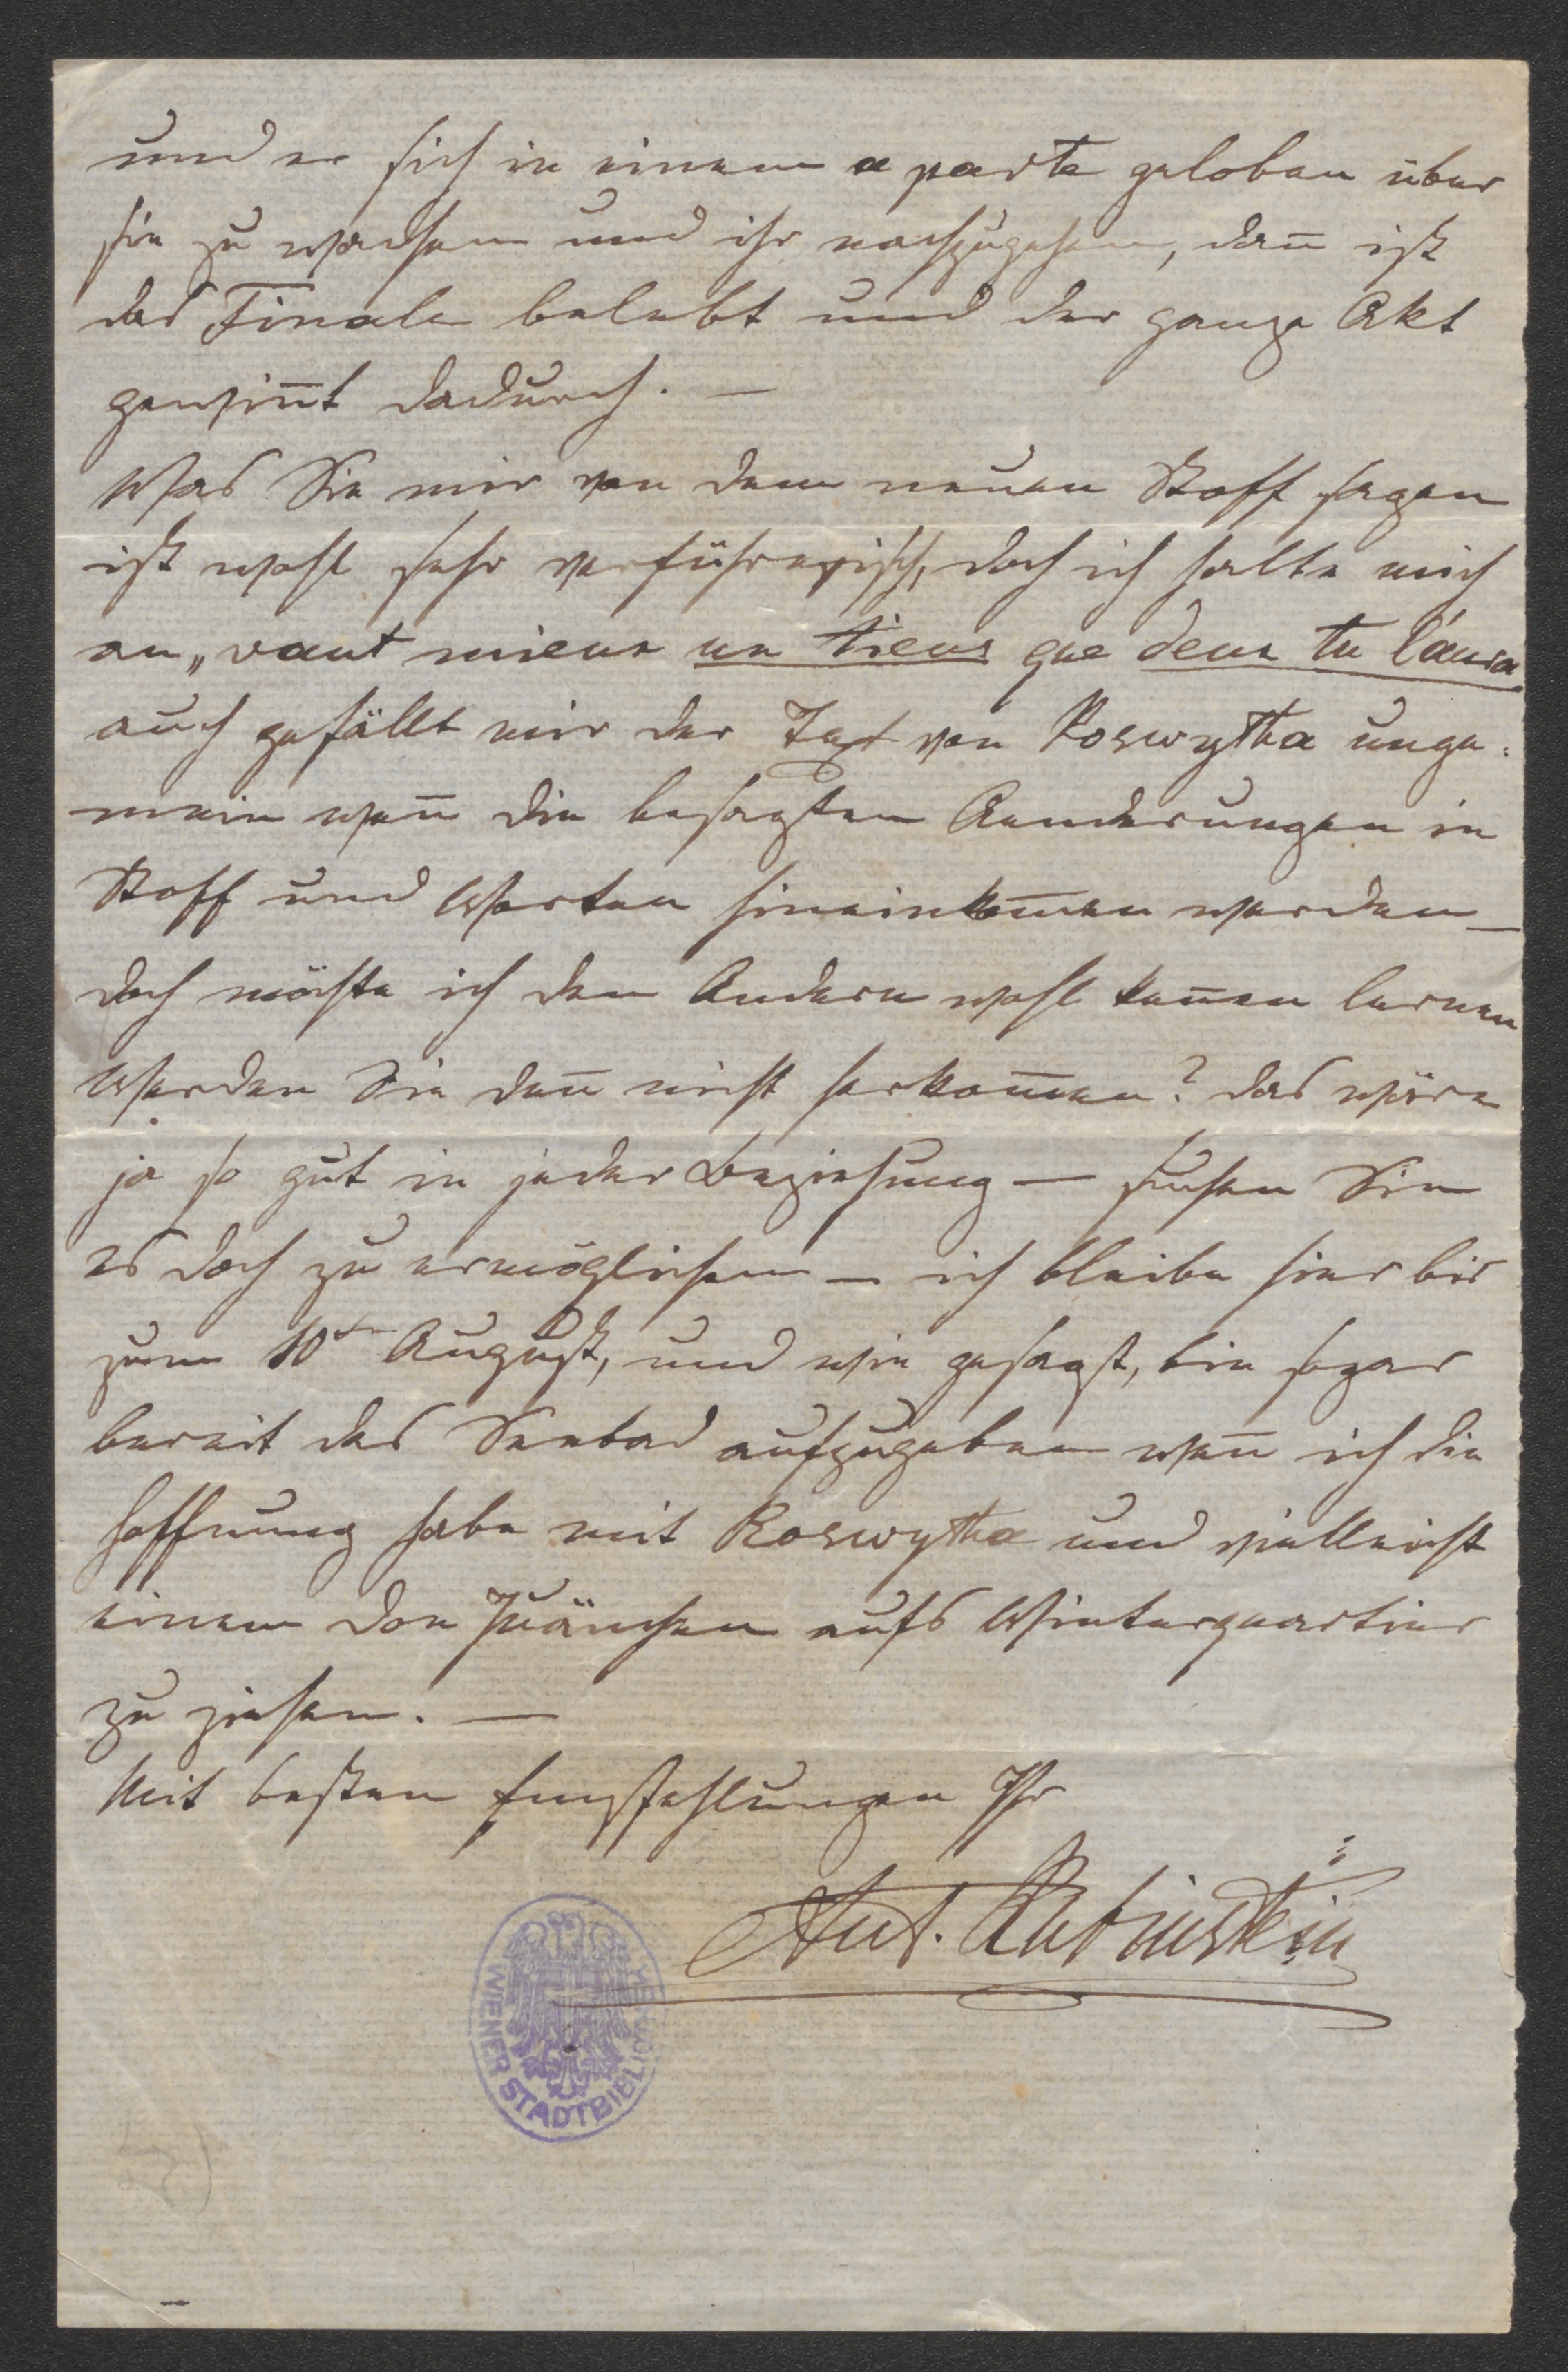 und er sich in einem a parte geloben über
sie zu wachen und ihr nachzugehen, dan̅ ist
das Finale belebt und der ganze Akt
gewin̅t dadurch. —
Was Sie mir von dem neuen Stoff sagen
ist wohl sehr verführerisch, doch ich halte mich
an „vaut mieux un tiens que deux tu l'auras
auch gefällt mir der Text von Roswytha unge-
mein wen̅ die besagten Aenderungen in
Stoff und Worten hineinkom̅en werden —
doch möchte ich den Andern wohl ken̅en lernen
Werden Sie den̅ nicht herkom̅en? das wäre
ja so gut in jeder Beziehung — suchen Sie
es doch zu ermöglichen — ich bleibe hier bis
zum 10ten August, und wie gesagt, bin sogar
bereit das Seebad aufzugeben wen̅ ich die
Hoffnung habe mit Roswytha und vielleicht
einem Don Juänchen aufs Winterquartier
zu ziehen. —
Mit besten Empfehlungen Ihr
Ant. Rubinstein
WIENER STADTBIBLIOTHEK